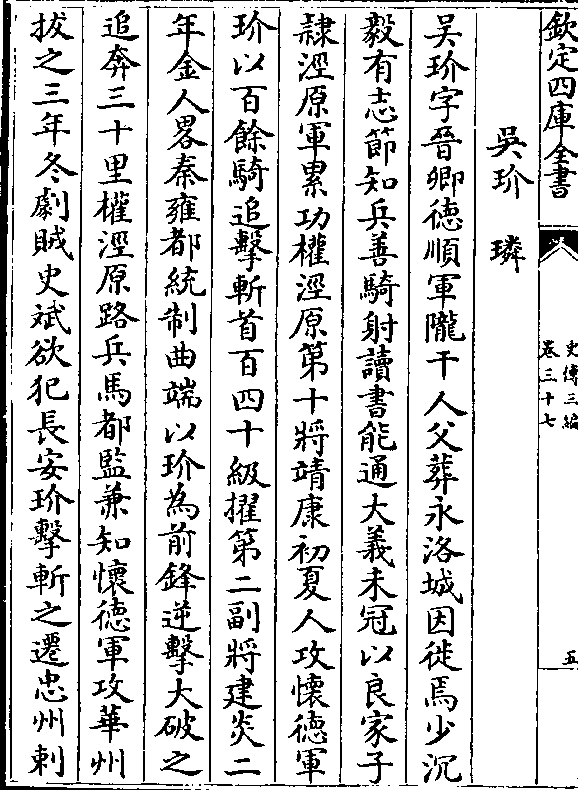 欽定四庫全書
史傳三編
卷三十七
五
吳玠 璘
吳玠字晉卿德順軍隴干人父葬永洛城因徙焉少沉
毅有志節知兵善騎射讀書能通大義未冠以良家子
隷涇原軍累功權涇原第十將靖康初夏人攻懷德軍
玠以百餘騎追擊斬首百四十級擢第二副將建炎二
年金人畧秦雍都統制曲端以玠為前鋒逆擊大破之
追奔三十里權涇原路兵馬都監兼知懷德軍攻華州
拔之三年冬劇賊史斌欲犯長安玠擊斬之遷忠州刺